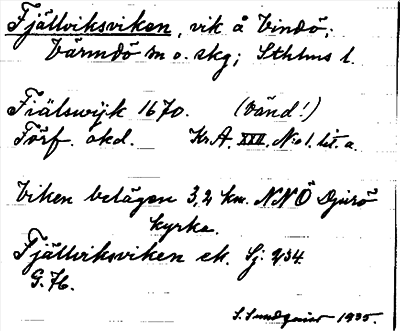 Fjällviksviken, vik å Vindö;
Värmdö sn o. skg; Sthlms l.
Fiälswijk 1670. (Vänd!)
Förf. okd. Kr.A. XXII. No 1. lit. a.
Viken belägen 3,2 km. NNÖ Djurö
kyrka.
Fjällviksviken ek. Sj. 234.
G. 76.
S. Sundqvist 1935.